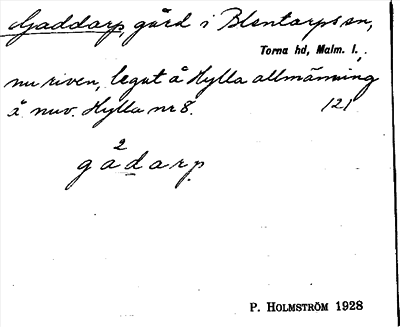 Gaddarp, gård i Blentarps sn,
Torna hd, Malm. l.,
nu riven, legat å Hylla allmänning
å nuv. Hylla nr 8. 121
2
gadarp
P. HOLMSTRÖM 1928